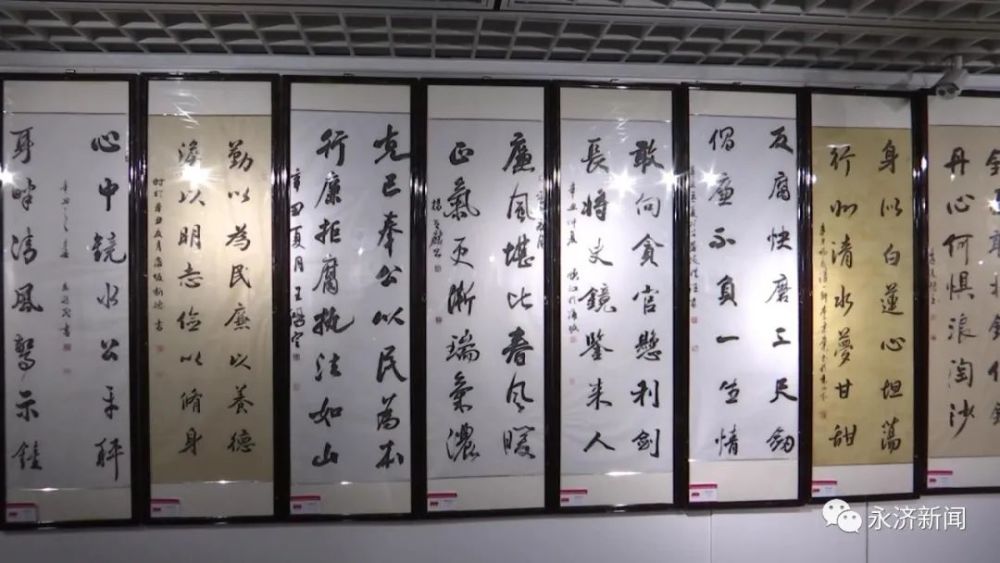 心中鏡水公平秤
耳畔清風警示鐘
勤以為民廉以養德
淡以明志儉以脩身
克己奉公以民為本
行廉拒腐執法如山
辛丑夏月王
廉風堪比春風暖
正氣更漸瑞氣濃
敢向貪官懸利劍
長將史鏡鑒來人
辛丑仲夏
反腐快磨三尺劍
倡廉不負一生情
身似白蓮心坦蕩
行如清水夢甘甜
丹心何惧浪淘沙
永济新闻